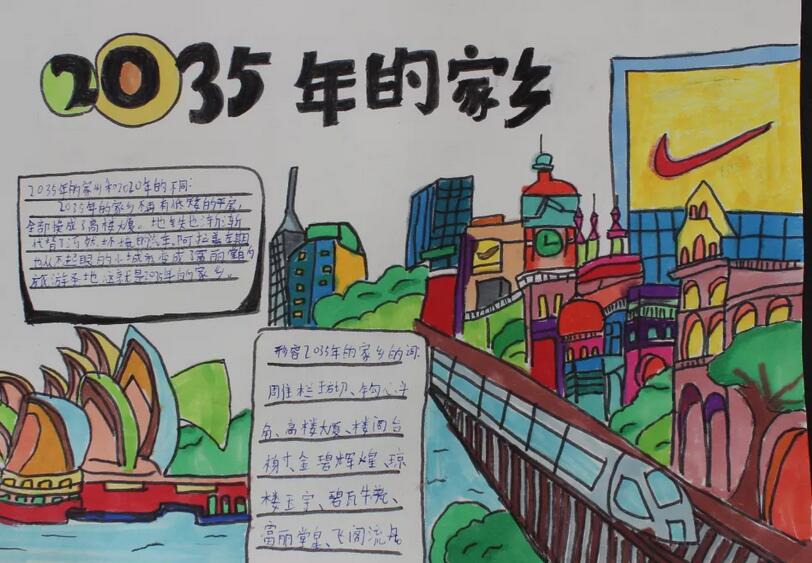 2035年的家乡
2035年的家乡和2020年的不同:
2035年的家乡不再有低矮的平房,
全部换成了高楼大厦。地铁也渐渐
代替了污染环境的汽车,阿拉善左旗
也从不起眼的小城市变成了富丽堂的
旅游圣地,这就是2035年的家乡。
形容2035年的家乡的词:
周住栏切、钩心斗
角、高楼大厦、楼阁台
榭、金碧辉煌、琼
楼玉宇、碧瓦
富丽堂皇、飞阁流